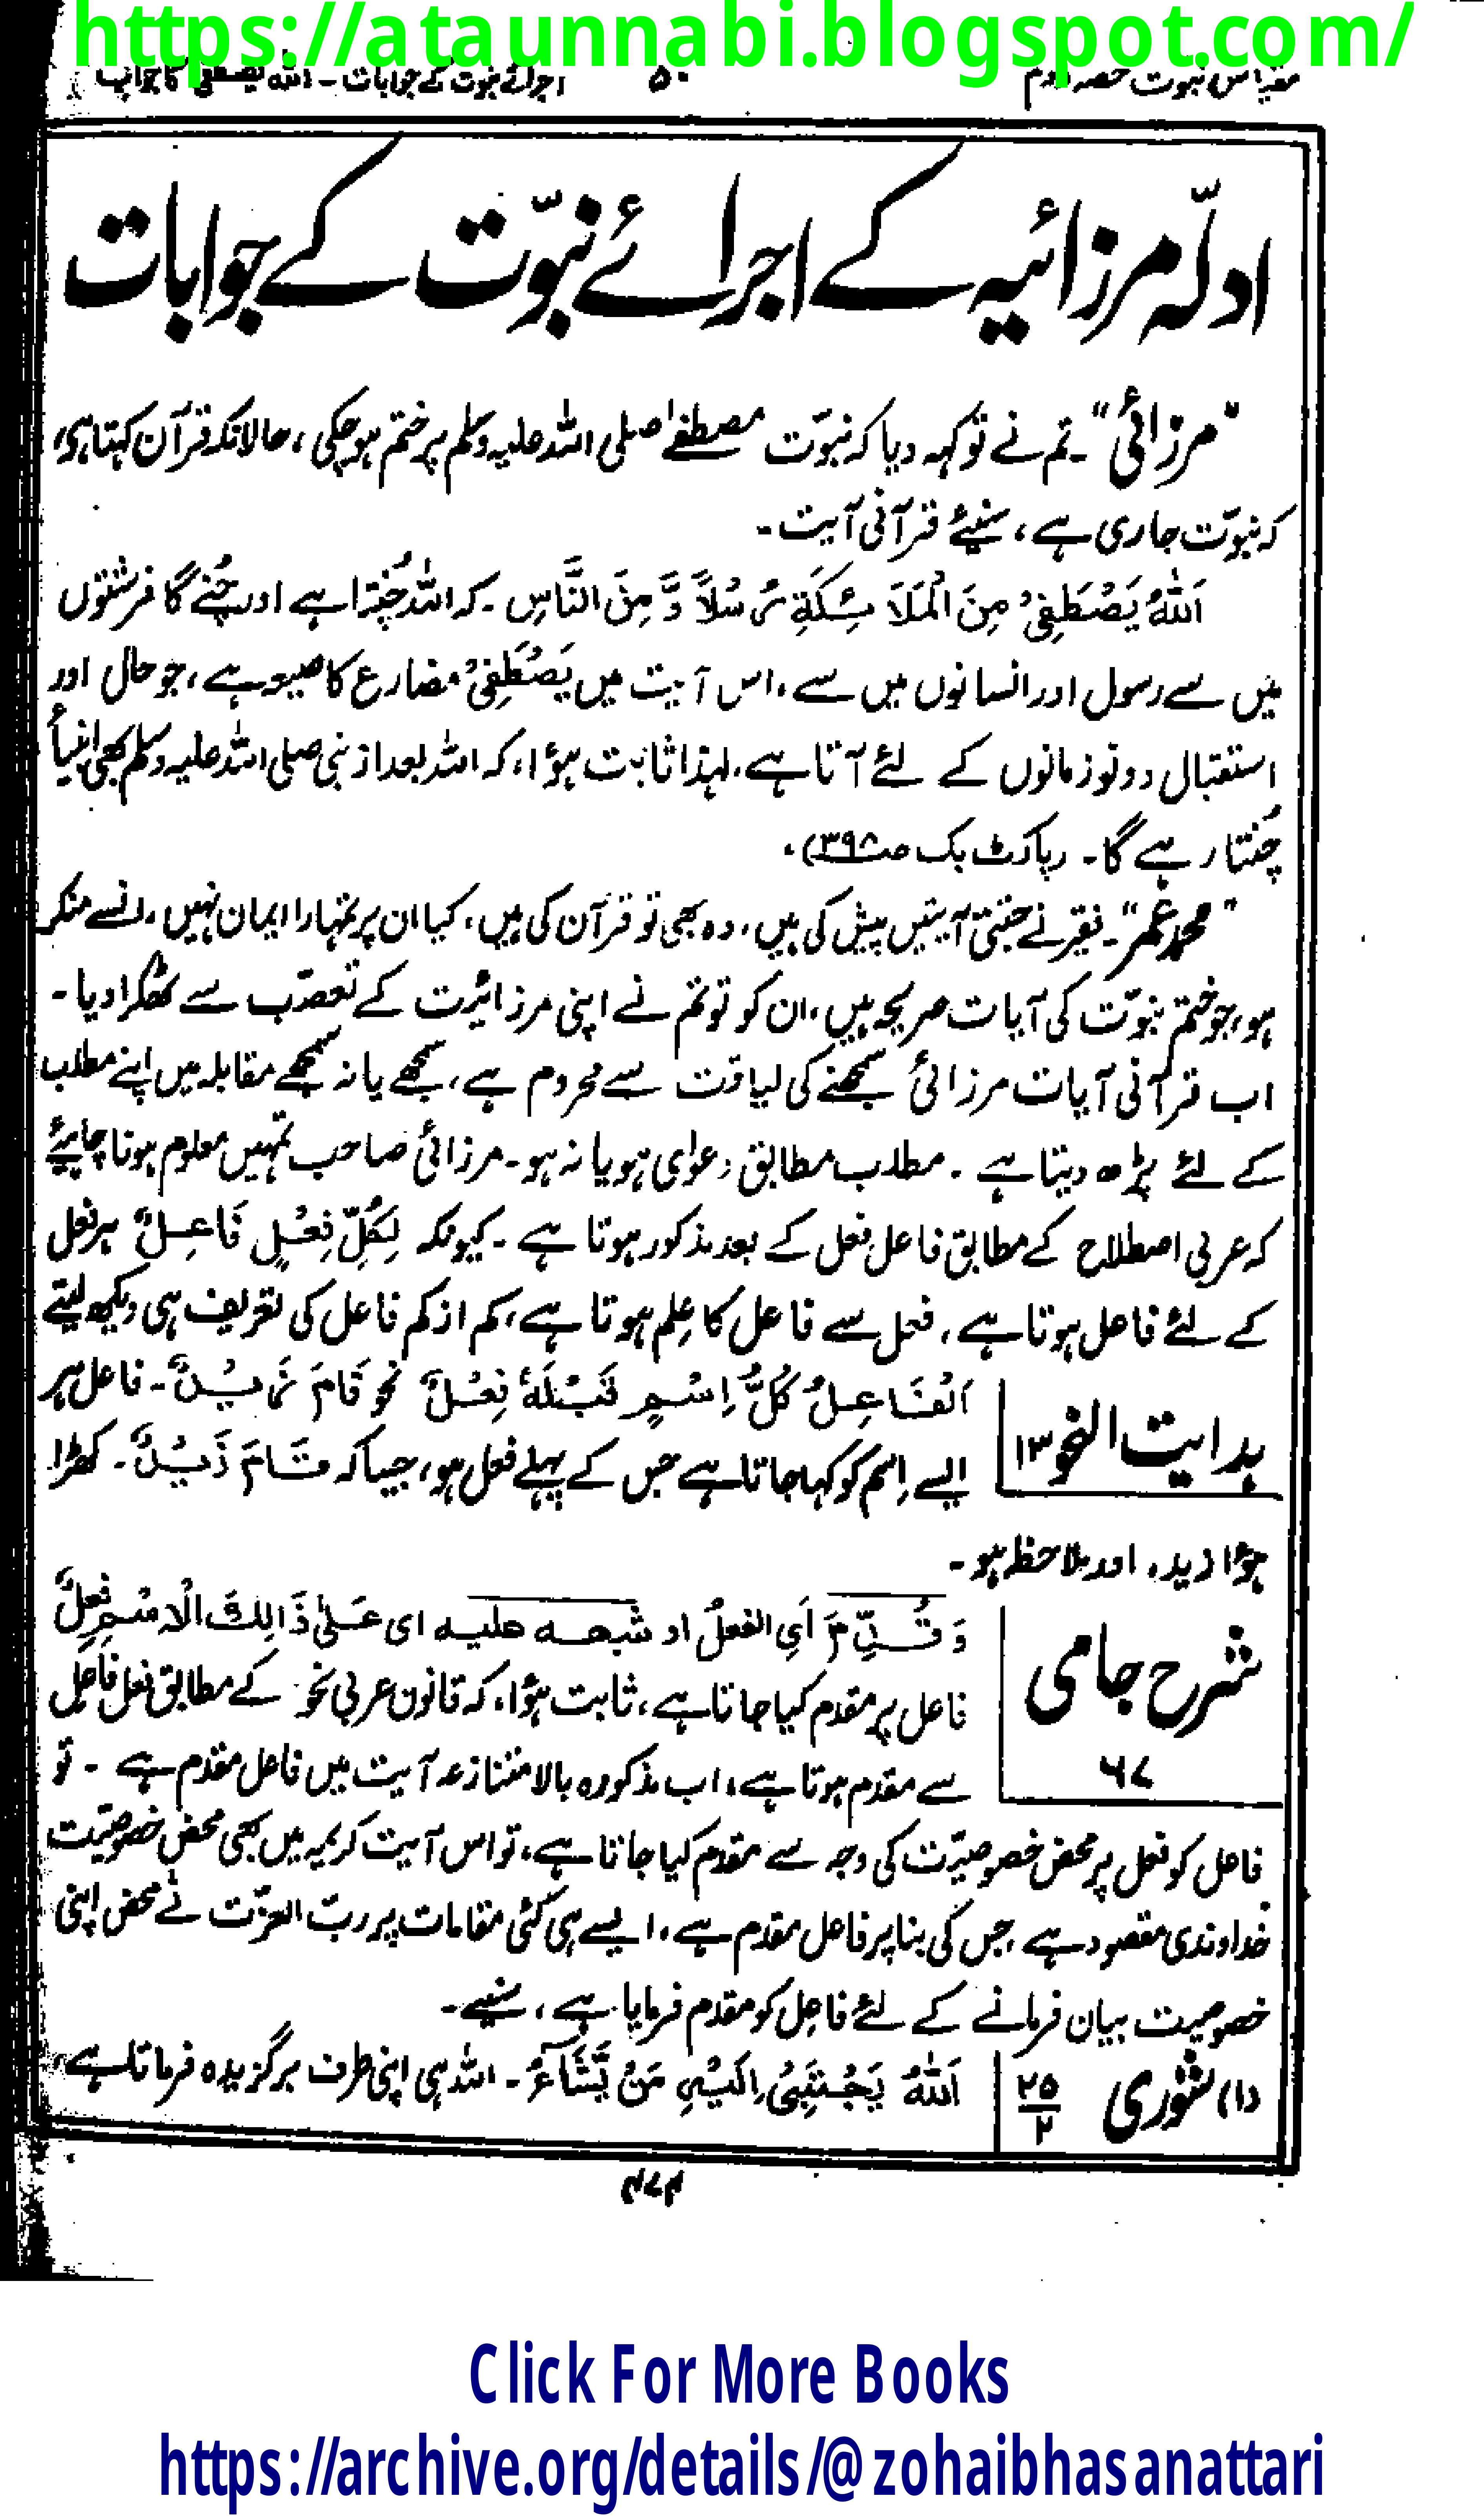 https://ataunnabi.blogspot.com/
مقیاس نبوت حصہ دوم ۵۰ اجرائے نبوت کے جوابات ۔ اللہ یصطفی کا جواب
ادلّہ مرزائیہ کے اجرائے نبوّت کے جوابات
"مرزائی"۔ تم نے تو کہہ دیا کہ نبوّت مصطفےٰ صلی اللہ علیہ وسلم پر ختم ہو چکی ، حالانکہ قرآن کہتا ہی،
کہ نبوّت جاری ہے ، سنیئے قرآنی آیت ۔
اَللّٰہُ یَصْطَفِیْ مِنَ الْمَلَائِکَۃِ رُسُلاً وَّ مِنَ النَّاسِ ۔ کہ اللہ چُنتا ہے اور چُنے گا فرشتوں
میں سے رسول اور انسانوں میں سے ، اس آیت میں یَصْطَفِیْ مضارع کا صیغہ ہے ، جو حال اور
استقبال دونو زمانوں کے لئے آتا ہے ، لہذا ثابت ہؤا ، کہ اللہ بعد از نبی صلی اللہ علیہ وسلم بھی انبیأ
چُنتا رہے گا ۔ (پاکٹ بک ص۳۹۸) ۔
"محمد عمر"۔ فقیر نے جتنی آیتیں پیش کی ہیں ، وہ بھی تو قرآن کی ہیں ، کیا ان پر تمہارا ایمان نہیں ، انسے منکر
ہو، جو ختم نبوّت کی آیات صریحہ ہیں ، ان کو تو تم نے اپنی مرزائیت کے تعصّب سے ٹھکرا دیا ۔
اب قرآنی آیات مرزائی سمجھنے کی لیاقت سے محروم ہے ، سمجھے یا نہ سمجھے مقابلہ میں اپنے مطلب
کے لئے پڑھ دیتا ہے ۔ مطلب مطابق دعوٰی ہو یا نہ ہو ۔ مرزائی صاحب تمہیں معلوم ہونا چاہیئے
کہ عربی اصطلاح کے مطابق فاعل فعل کے بعد مذکور ہوتا ہے ۔ کیونکہ لِکُلِّ فِعْلٍ فَاعِلٌ ہر فعل
کے لئے فاعل ہوتا ہے ، فعل سے فاعل کا عِلم ہوتا ہے ، کم از کم فاعل کی تعریف ہی دیکھ لیتے
ہدایت النحو ۱۳ اَلْفَاعِلُ کُلُّ اِسْمٍ قَبْلَہٗ فِعْلٌ نحو قَامَ زَیْدٌ ۔ فاعل ہر
ایسے اِسم کو کہا جاتا ہے جس کے پہلے فعل ہو ، جیسا کہ قَامَ زَیْدٌ ۔ کھڑا
ہؤا زید ، اور ملاحظہ ہو ۔
شرح جامی ۶۷ وَ قُدِّمَ اَیِ الفعلُ او شبھہ علیہ ای عَلیٰ ذَالِکَ الْاِسْمِ فِعْلٌ
فاعل پر مقدم کیا جاتا ہے ، ثابت ہؤا ، کہ قانون عربی نحو کے مطابق فعل فاعل
سے مقدم ہوتا ہے ، اب مذکورہ بالا متنازعہ آیت میں فاعل مقدم ہے ۔ تو
فاعل کو فعل پر محض خصوصیّت کی وجہ سے مقدم کیا جاتا ہے ، تو اس آیت کریمہ میں بھی محض خصوصیّت
خداوندی مقصود ہے ، جس کی بنا پر فاعل مقدم ہے ، ایسے ہی کئی مقامات پر ربّ العزّت نے محض اپنی
خصوصیت بیان فرمانے کے لئے فاعل کو مقدم فرمایا ہے ، سنیے ۔
(۱) شوری ۲۵/۲ اَللّٰہُ یَجْتَبِیْ اِلَیْہِ مَنْ یَّشَآءُ ۔ اللہ ہی اپنی طرف برگزیدہ فرماتا ہے،
۴۷۴
Click For More Books
https://archive.org/details/@zohaibhasanattari